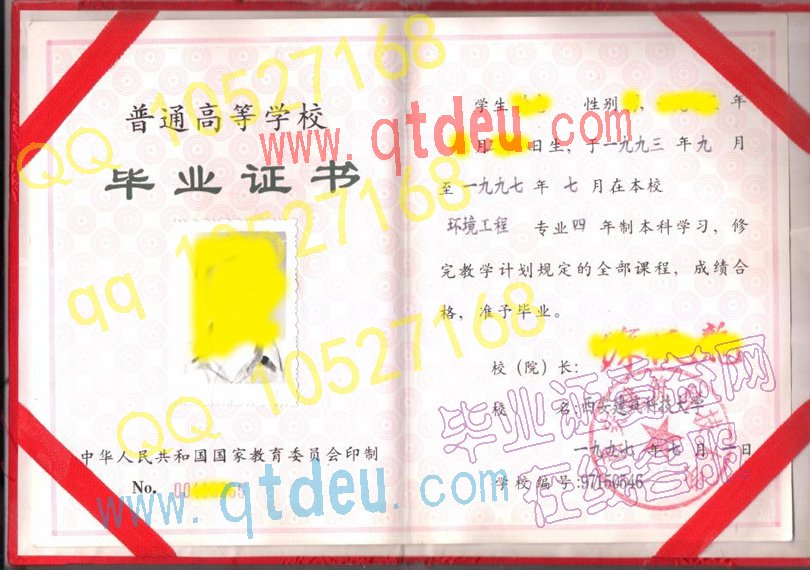 普通高等学校
毕业证书
中华人民共和国国家教育委员会印制
No.
学生 性别 年
月 日生，于一九九三年九月
至一九九七年七月在本校
环境工程 专业四年制本科学习，修
完教学计划规定的全部课程，成绩合
格，准予毕业。
校（院）长：
校 名：西安建筑科技大学
一九九七年七月一日
学校编号：97150546
QQ 10527168
www.qtdeu.com
qq 10527168
QQ 10527168
www.qtdeu.com
在线咨询